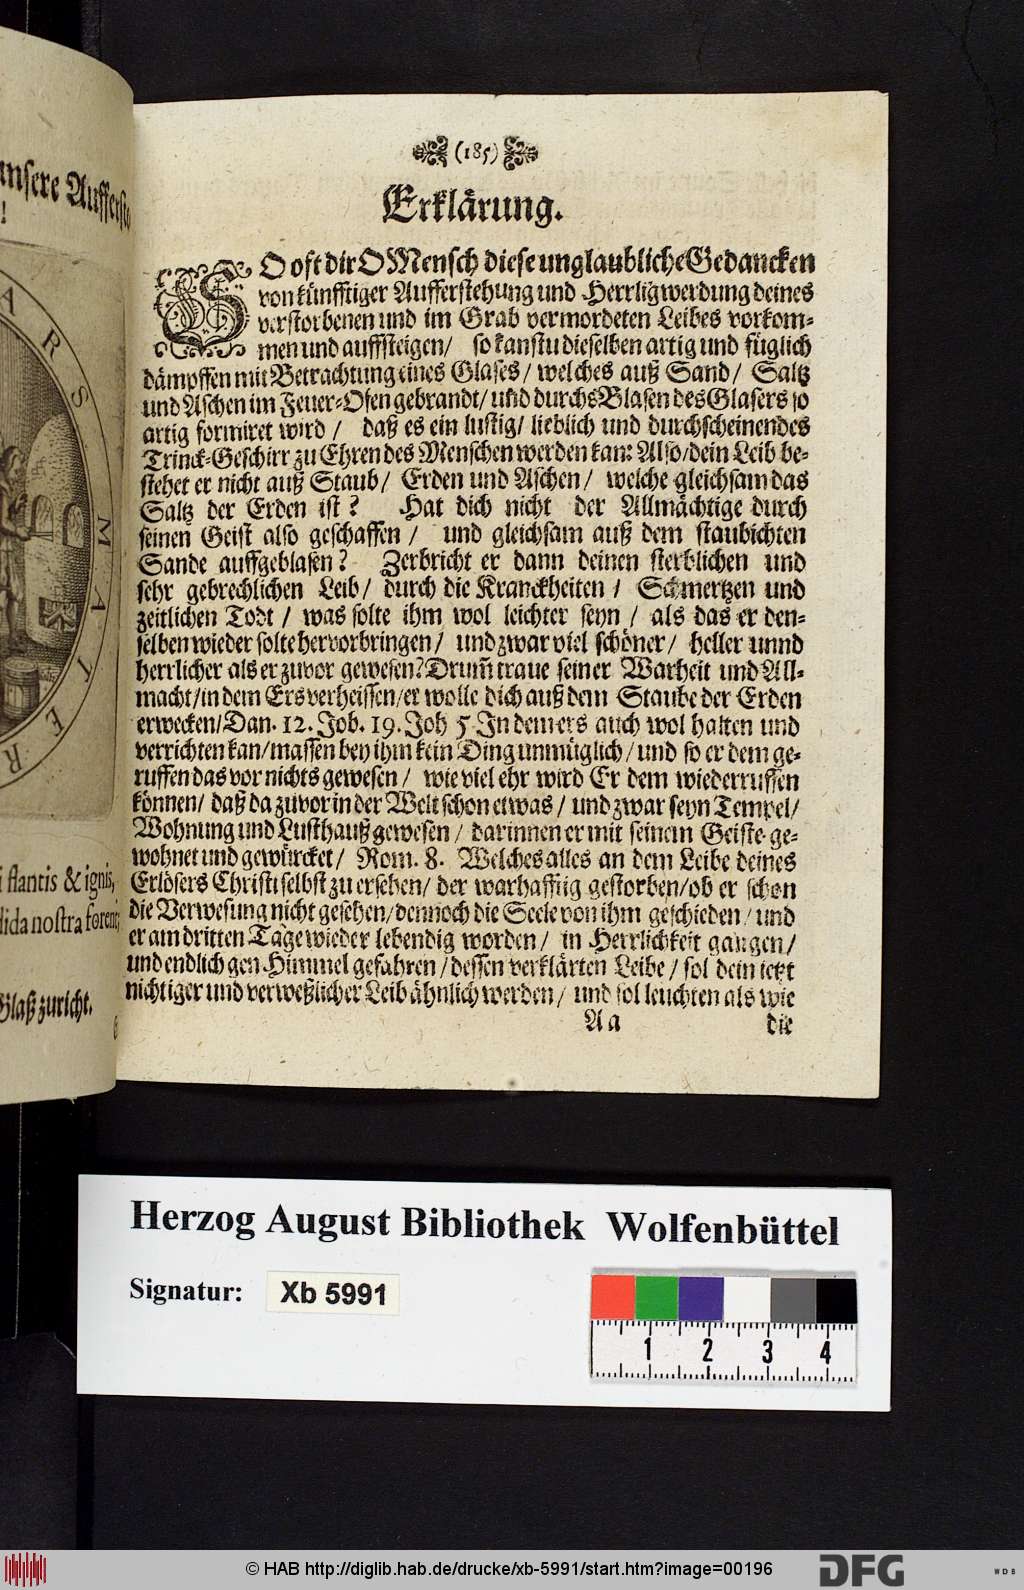 (185)
Erklärung.
SO oft dir O Mensch diese unglaubliche Gedancken
von künfftiger Aufferstehung und Herrligwerdung deines
verstorbenen und im Grab vermordeten Leibes vorkom-
men und auffsteigen/ so kanstu dieselben artig und füglich
dämpffen mit Betrachtung eines Glases/ welches auß Sand/ Saltz
und Aschen im Feuer-Ofen gebrandt/ und durchs Blasen des Glasers so
artig formiret wird/ daß es ein lustig/ lieblich und durchscheinendes
Trinck-Geschirr zu Ehren des Menschen werden kan: Also/ dein Leib be-
stehet er nicht auß Staub/ Erden und Aschen/ welche gleichsam das
Saltz der Erden ist? Hat dich nicht der Allmächtige durch
seinen Geist also geschaffen/ und gleichsam auß dem staubichten
Sande auffgeblasen? Zerbricht er dann deinen sterblichen und
sehr gebrechlichen Leib/ durch die Kranckheiten/ Schmertzen und
zeitlichen Todt/ was solte ihm wol leichter seyn/ als das er den-
selben wieder solte hervorbringen/ und zwar viel schöner/ heller unnd
herrlicher als er zuvor gewesen? Drum̃ traue seiner Warheit und All-
macht/ in dem Ers verheissen/ er wolle dich auß dem Staube der Erden
erwecken/ Dan. 12. Job. 19. Joh 5. In dem ers auch wol halten und
verrichten kan/ massen bey ihm kein Ding unmüglich/ und so er dem ge-
ruffen das vor nichts gewesen/ wie viel ehr wird Er dem wiederruffen
können/ daß da zuvor in der Welt schon etwas/ und zwar seyn Tempel/
Wohnung und Lusthauß gewesen/ darinnen er mit seinem Geiste ge-
wohnet und gewürcket/ Rom. 8. Welches alles an dem Leibe deines
Erlösers Christi selbst zu ersehen/ der warhafftig gestorben/ ob er schon
die Verwesung nicht gesehen/ dennoch die Seele von ihm geschieden/ und
er am dritten Tage wieder lebendig worden/ in Herrlichkeit gangen/
und endlich gen Himmel gefahren/ dessen verklärten Leibe/ sol dein ietzt
nichtiger und verweßlicher Leib ähnlich werden/ und sol leuchten als wie
Aa die
unsere Aufferste
!
ARSMATER
i flantis & ignis,
dida nostra forent;
Glaß zuricht.
Herzog August Bibliothek Wolfenbüttel
Signatur: Xb 5991
1 2 3 4
© HAB http://diglib.hab.de/drucke/xb-5991/start.htm?image=00196
DFG
WDB